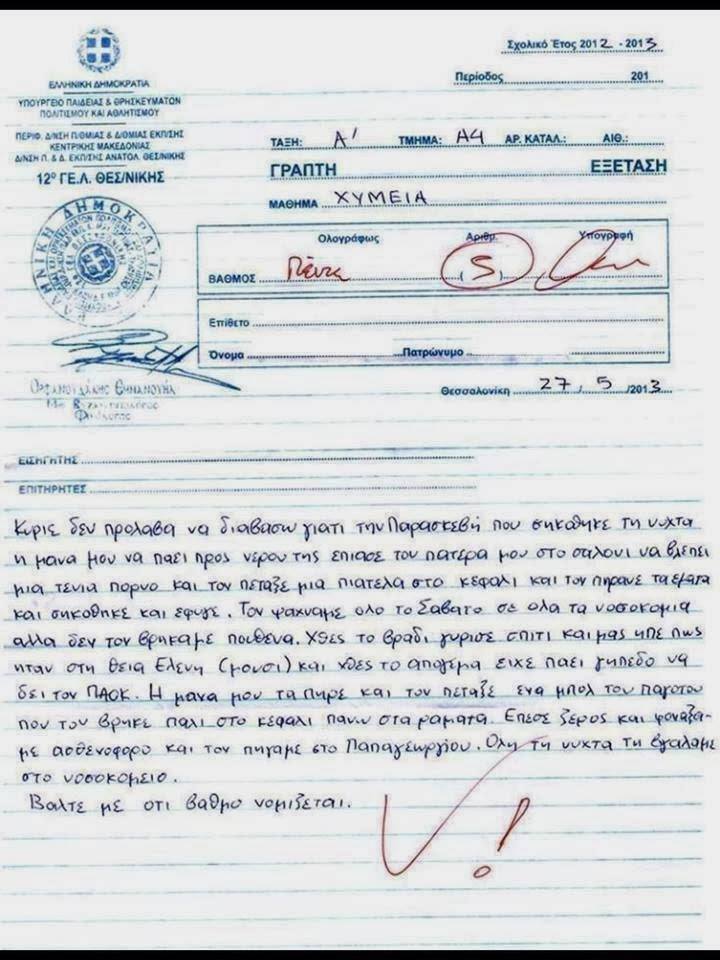 Σχολικό Έτος 2012 - 2013
Περίοδος 201
ΕΛΛΗΝΙΚΗ ΔΗΜΟΚΡΑΤΙΑ
ΥΠΟΥΡΓΕΙΟ ΠΑΙΔΕΙΑΣ & ΘΡΗΣΚΕΥΜΑΤΩΝ
ΠΟΛΙΤΙΣΜΟΥ ΚΑΙ ΑΘΛΗΤΙΣΜΟΥ
ΠΕΡΙΦ. Δ/ΝΣΗ Π/ΘΜΙΑΣ & Δ/ΘΜΙΑΣ ΕΚΠ/ΣΗΣ
ΚΕΝΤΡΙΚΗΣ ΜΑΚΕΔΟΝΙΑΣ
Δ/ΝΣΗ Π. & Δ. ΕΚΠ/ΣΗΣ ΑΝΑΤΟΛ. ΘΕΣ/ΝΙΚΗΣ
12º ΓΕ.Λ. ΘΕΣ/ΝΙΚΗΣ
ΤΑΞΗ: Α' ΤΜΗΜΑ: Α4 ΑΡ. ΚΑΤΑΛ.: ΑΙΘ.:
ΓΡΑΠΤΗ ΕΞΕΤΑΣΗ
ΜΑΘΗΜΑ ΧΥΜΕΙΑ
Ολογράφως Αριθμ. Υπογραφή
ΒΑΘΜΟΣ Πέντε (5)
Επίθετο
Όνομα Πατρώνυμο
Θεσσαλονίκη 27 , 5 /2013
ΕΙΣΗΓΗΤΗΣ
ΕΠΙΤΗΡΗΤΕΣ
Κυριε δεν προλαβα να διαβασω γιατι την Παρασκεβή που σηκοθηκε τη νυχτα
η μανα μου να παει προς νερου της επιασε τον πατερα μου στο σαλονι να βλεπει
μια τενια πορνο και τον πεταξε μια πιατελα στο κεφαλι και τον πηρανε τα εματα
και σηκοθηκε και εφυγε. Τον ψαχναμε ολο το Σαβατο σε ολα τα νοσοκομια
αλλα δεν τον βρηκαμε πουθενα. Χθες το βραδι γυρισε σπιτι και μας ηπε πως
ηταν στη θεια Ελενη (μουσι) και χθες το απογεμα ειχε παει γηπεδο να
δει τον ΠΑΟΚ. Η μανα μου τα πηρε και τον πεταξε ενα μπολ του παγοτου
που τον βρηκε παλι στο κεφαλι πανω στα ραματα. Επεσε ξερος και φοναξα-
με ασθενοφορο και τον πηγαμε στο Παπαγεωργιου. Ολη τη νυχτα τη βγαλαμε
στο νοσοκομειο.
Βαλτε με οτι βαθμο νομιζεται.